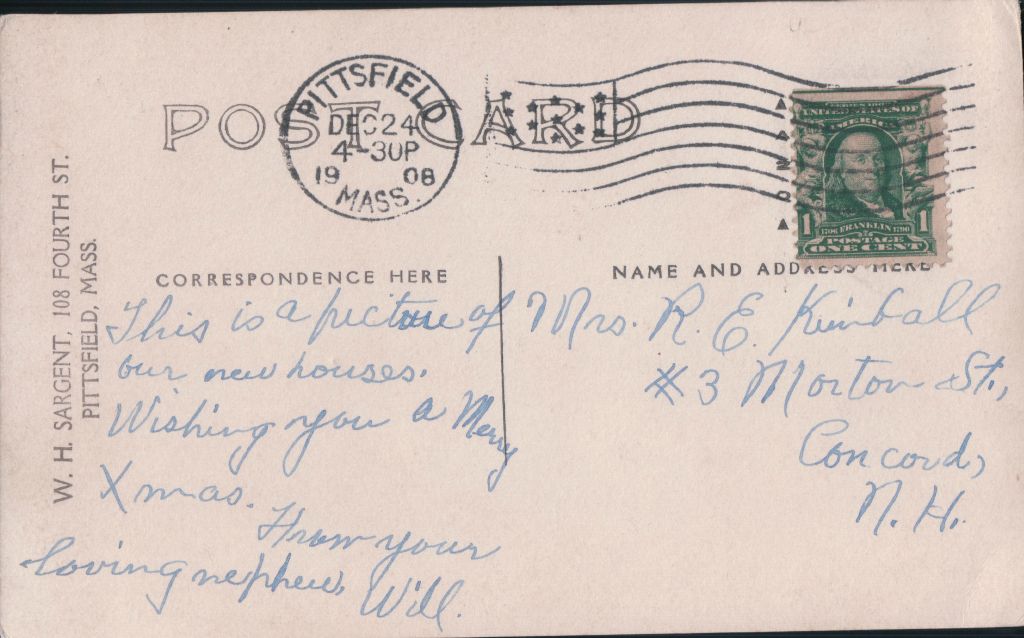 POST CARD
PITTSFIELD
DEC 24
4-30P
1908
MASS.
UNITED STATES OF
AMERICA
1706 FRANKLIN 1790
1 1
POSTAGE
ONE CENT
W. H. SARGENT, 108 FOURTH ST.
PITTSFIELD, MASS.
CORRESPONDENCE HERE
This is a picture of
our new houses.
Wishing you a Merry
Xmas.
From your
loving nephew,
Will.
NAME AND ADDRESS HERE
Mrs. R. E. Kimball
#3 Morton St.,
Concord,
N. H.